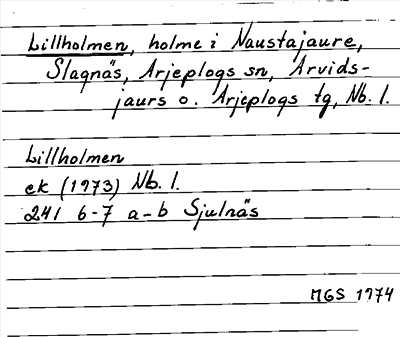 Lillholmen, holme i Naustajaure,
Slagnäs, Arjeplogs sn, Arvids-
jaurs o. Arjeplogs tg, Nb. l.
Lillholmen
ek (1973) Nb. l.
241 6-7 a-b Sjulnäs
MGS 1974